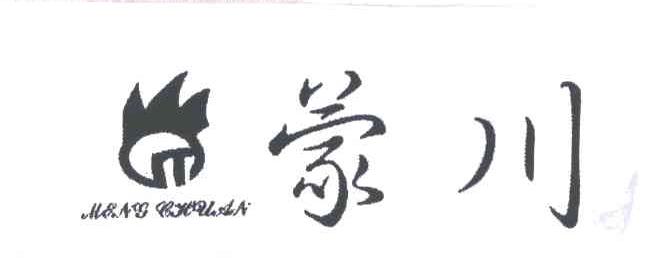 蒙川
MENG CHUAN